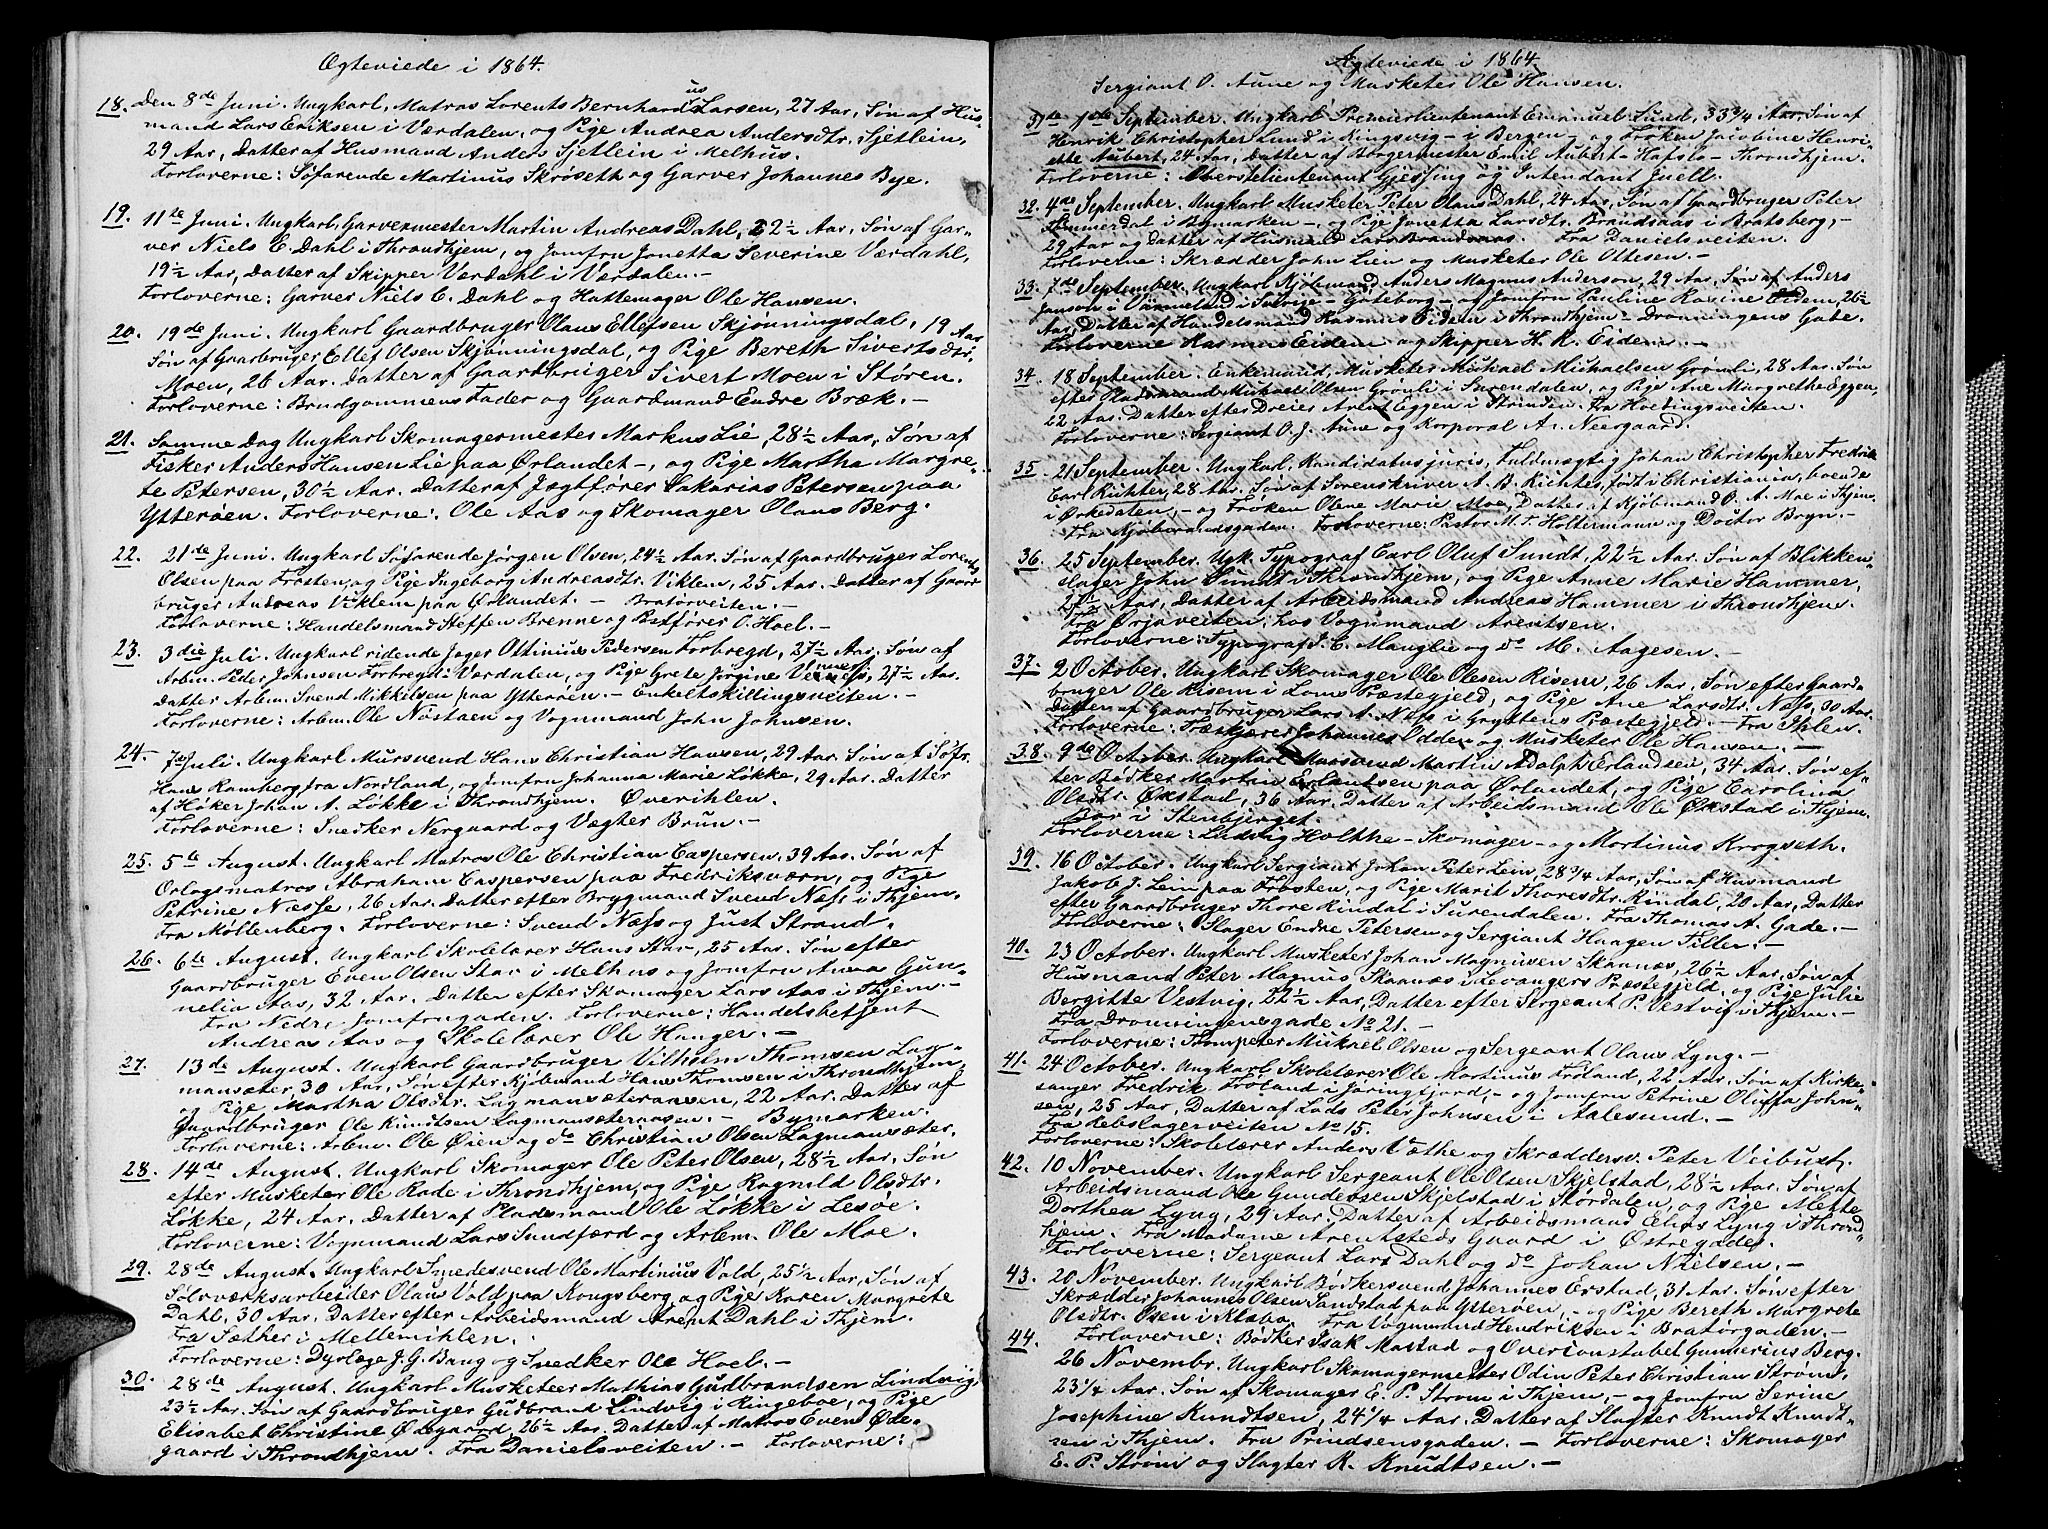 Ægteviede i 1864.
18. Den 8de Juni. Ungkarl, Matros Lorents Bernhardus Larsen, 27 Aar, Søn af Hus-
mand Lars Eriksen i Værdalen, og Pige Andrea Andersdtr. Sjetlein,
29 Aar, Datter af Husmand Anders Sjetlein i Melhus.
Forloverne: Søfarende Martinus Skrøseth og Garver Johannes Bye.
19. 11te Juni. Ungkarl, Garvermester Martin Andreas Dahl, 22½ Aar, Søn af Gar-
ver Niels E. Dahl i Throndhjem, og Jomfru Jonetta Severine Værdahl,
19½ Aar, Datter af Skipper Værdahl i Værdalen.-
Forloverne: Garver Niels E. Dahl og Hattemager Ole Hansen.
20. 19de Juni. Ungkarl Gaardbruger Olaus Ellefsen Skjønningsdal, 19 Aar
Søn af Gaarbruger Ellef Olsen Skjønningsdal, og Pige Bereth Sivertsdtr.
Moen, 26 Aar. Datter af Gaardbruger Sivert Moen i Støren.
Forloverne: Brudgommens Fader og Gaardmand Endre Bræk.-
21. Samme Dag Ungkarl Skomagermester Markus Lie, 28½ Aar, Søn af
Fisker Anders Hansen Lie paa Ørlandet-, og Pige Martha Margre-
te Petersen, 30½ Aar. Datter af Jægtfører Zakarias Petersen paa
Ytterøen. Forloverne: Ole Aas og Skomager Olaus Berg.
22. 21de Juni. Ungkarl Søfarende Jørgen Olsen, 24½ Aar. Søn af Gaardbruger Lorents
Olsen paa Frosten, og Pige Ingeborg Andreasdtr. Viklem, 25 Aar. Datter af Gaard
bruger Andreas Viklem paa Ørlandet. - Bratørveiten.-
Forloverne: Handelsmand Steffen Brenne og Postfører O. Hoel.-
23. 3die Juli. Ungkarl ridende Jæger Ottinius Pedersen Forbregd, 27½ Aar. Søn af
Arbm. Peder Johnsen Forbregd i Værdalen, og Pige Grete Jørgine Vennes, 27½ Aar.
Datter Arbm. Svend Mikkelsen paa Ytterøen.- Enkeltskillingsveiten.-
Forloverne: Arbm. Ole Nøstaen og Vognmand John Johnsen.
24. 7de Juli. Ungkarl Mursvend Hans Christian Hansen, 29 Aar. Søn af Søfr.
Hans Ramberg fra Nordland, og Jomfru Johanna Marie Løkke, 29 Aar. Datter
af Høker Johan A. Løkke i Throndhjem. Øverihlen.
Forloverne: Snedker Nergaard og Vægter Brun.-
25. 5te August. Ungkarl Matros Ole Christian Caspersen, 39 Aar. Søn af
Orlogsmatros Abraham Caspersen paa Fredriksværn, og Pige
Petrine Næsse, 26 Aar. Datter efter Brygmand Svend Næss i Thjem.
Fra Møllenberg. Forloverne: Svend Næss og Just Strand.
26. 6te August. Ungkarl Skolelærer Hans Stav, 25 Aar. Søn efter
Gaardbruger Even Olsen Stav i Melhus og Jomfru Anna Gun-
nelia Aas, 32 Aar. Datter efter Skomager Lars Aas i Thjem.-
Fra Nedre Jomfrugaden. Forloverne: Handelsbetjent
Andreas Aas og Skolelærer Ole Hanger.-
27. 13de August. Ungkarl Gaardbruger Vilhelm Thomsen Lag-
mansæter, 30 Aar, Søn efter Kjøbmand Hans Thomsen i Throndhjem
og Pige Martha Olsdtr. Lagmansæteraasen, 22 Aar. Datter af
Gaardbruger Ole Knudsen Lagmansæteraasen.- Bymarken.
Forloverne: Arbm. Ole Øien og do Christian Olsen Lagmansæter.
28. 14de August. Ungkarl Skomager Ole Peter Olsen, 28½ Aar, Søn
efter Musketer Ole Rode i Throndhjem, og Pige Ragnild Olsdtr.
Løkke, 24 Aar. Datter af Pladsmand Ole Løkke i Lesøe.
Forloverne: Vognmand Lars Sundfærd og Arbm. Ole Moe.
29. 28de August. Ungkarl Smedesvend Ole Martinius Vold, 25½ Aar, Søn af
Sølvværksarbeider Olaus Vold paa Kongsberg, og Pige Karen Margrete
Dahl, 30 Aar. Datter efter Arbeidsmand Arent Dahl i Thjem.
Fra Sæther i Mellemihlen.
Forloverne: Dyrlæge J. G. Bang og Snedker Ole Hoel.-
30. 28de August. Ungkarl Musketeer Mathias Gudbrandsen Lindvig,
23½ Aar. Søn af Gaardbruger Gudbrand Lindvig i Ringeboe, og Pige
Elisabet Christine Ødegaard, 26½ Aar. Datter af Matros Even Øde-
gaard i Throndhjem. Fra Danielsveiten.- Forloverne:
Ægteviede i 1864.
Sergiant O. Aune og Musketer Ole Hansen.
31te 1ste September. Ungkarl Premierlieutenant Emanuel Lund, 33¾ Aar. Søn af
Henrik Christopher Lund i Kingsvig - i Bergen - og Frøken Jacobine Henri-
ette Aubert, 24 Aar, Datter af Borgermester Emil Aubert-Hafslo- Throndhjem.
Forloverne: Oberstelieutenant Gjessing og Intendant Juell.
32. 4de September. Ungkarl Musketer Peter Olaus Dahl, 24 Aar, Søn af Gaardbruger Peter
Hammerdal i Bymarken - og Pige Jonetta Larsdtr. Brandsaas i Bratsberg,-
29 Aar og Datter af Husmand Lars Brandsaas. Fra Danielsveiten.
Forloverne: Skrædder John Lien og Musketer Ole Ottesen.-
33. 7de September. Ungkarl Kjøbmand Anders Magnus Anderson, 29 Aar, Søn af Anders
Janson i Värmeland i Sverige - Göteborg - og Jomfru Pauline Rasine Eidem, 26½
Aar, Datter af Handelsmand Rasmus Eidem i Throndhjem - Dronningens Gade.
Forloverne Rasmus Eidem og Skipper H. K. Eidem.-
34. 18 September. Enkemand, Musketer Michael Michaelsen Grønli, 28 Aar. Søn
efter Pladsmand Michael Olsen Grønli i Surendalen, og Pige Ane Margrethe Eggen,
22 Aar. Datter efter Dreier Arent Eggen i Strinden. Fra Hvedingsveiten.
Forloverne: Sergiant O. J. Aune og Korporal A. Neergaard.
35. 21 September. Ungkarl, Kandidatus juris, Fuldmægtig Johan Christopher Fredrik
Carl Richter, 28 Aar. Søn af Sorenskriver A. B. Richter, født i Christiania, boende
i Ørkedalen,- og Frøken Olene Marie Moe, Datter af Kjøbmand O. A. Moe i Thjem.
Fra Kjøbmandsgaden. Forloverne: Pastor M. T. Holtermann og Doctor Bryn.-
36. 25 September. Ugk. Typograf Carl Oluf Sundt, 22½ Aar. Søn af Blikken-
slager John Sundt i Throndhjem, og Pige Anne Marie Hammer,
27½ Aar, Datter af Arbeidsmand Andreas Hammer i Throndhjem.
Fra Ørjaveiten, hos Vognmand Arentsen.
Forloverne: Typograf J. C. Manglie og do M. Aagesen.-
37. 2 October. Ungkarl Skomager Ole Olesen Risem, 26 Aar, Søn efter Gaard-
bruger Ole Risem i Loms Præstegjeld, og Pige Ane Larsdtr. Næss, 30 Aar.
Datter af Gaardbruger Lars A. Næss i Gryttens Præstegjeld.- Fra Ihlen.
Forloverne: Træskjærer Johannes Odden og Musketer Ole Hansen.-
38. 9de October. Ungkarl Mursvend Martin Adolph Erlandsen, 34 Aar. Søn ef-
ter Bødker Martin Erlantsen paa Ørlandet, og Pige Carolina
Olsdtr. Øxstad, 36 Aar. Datter af Arbeidsmand Ole Øxstad i Thjem.
Bor i Stenbjerget.
Forloverne: Ludvig Holthe - Skomager - og Martinus Krogseth.
39. 16 October. Ungkarl Sergiant Johan Peter Lein, 28¾ Aar, Søn af Husmand
Jakob J. Lein paa Frosten, og Pige Marit Thoresdtr. Rindal, 20 Aar, Datter
efter Gaardbruger Thore Rindal i Surendalen. Fra Thomas A. Gade.-
Forloverne: Slager Endre Petersen og Sergiant Haagen Tiller.-
40. 23 October. Ungkarl Musketer Johan Magnusen Skaanæs, 26½ Aar, Søn af
Husmand Peter Magnus Skaanæs i Levangers Præstegjeld, og Pige Julie
Bergitte Vestvig, 22½ Aar, Datter efter Sergeant P. Vestvig i Thjem.-
Fra Dronningensgade No 21.-
Forloverne: Trompeter Mickael Olsen og Sergeant Olaus Lyng.-
41. 24 October. Ungkarl Skolelærer Ole Martinus Frøland, 22 Aar. Søn af Kirke-
sanger Fredrik Frøland i Jøringfjord,- og Jomfru Petrine Oluffa John-
sen, 25 Aar, Datter af Lods Peter Johnsen i Aalesund.-
Fra Rebslagerveiten No 15.
Forloverne: Skolelærer Anders Væthe og Skræddersv. Peter Veibust.
42. 10 November. Ungkarl Sergeant Ole Olsen Skjelstad, 28½ Aar. Søn af
Arbeidsmand Ole Gundersen Skjelstad i Størdalen, og Pige Mette
Dorthea Lyng, 29 Aar. Datter af Arbeidsmand Elias Lyng i Thrond-
hjem. Fra Madame Arentsteds Gaard i Østregade.
Forloverne: Sergeant Lars Dahl og do Johan Nielsen.-
43. 20 November. Ungkarl Bødkersvend Johannes Erstad, 31 Aar. Søn efter
Skrædder Johannes Olsen Sandstad paa Ytterøen,- og Pige Bereth Margrete
Olsdtr. Osen i Klæbo. Fra Vognmand Hendriksen i Bratørgaden.-
Forloverne: Bødker Isak Mastad og Overconstabel Gunnerius Berg.
44. 26 Novembr. Ungkarl Skomagermester Odin Peter Christian Strøm,
23¼ Aar. Søn af Skomager E. P. Strøm i Thjem,- og Jomfru Serine
Josephine Knudtsen, 24¼ Aar. Datter af Slagter Knudt Knudt-
sen i Thjem. Fra Prindsensgaden.- Forloverne: Skomager
E. P. Strøm og Slagter K. Knudtsen.-